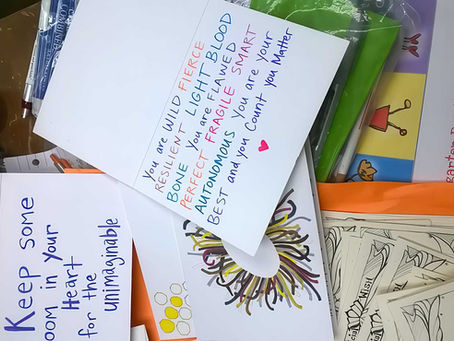 You are WILD FIERCE
RESILIENT LIGHT BLOOD
BONE You are FLAWED
PERFECT FRAGILE SMART
AUTONOMOUS You are your
BEST and you Count you Matter
Keep some
ROOM in your
Heart
for the
unimaginable